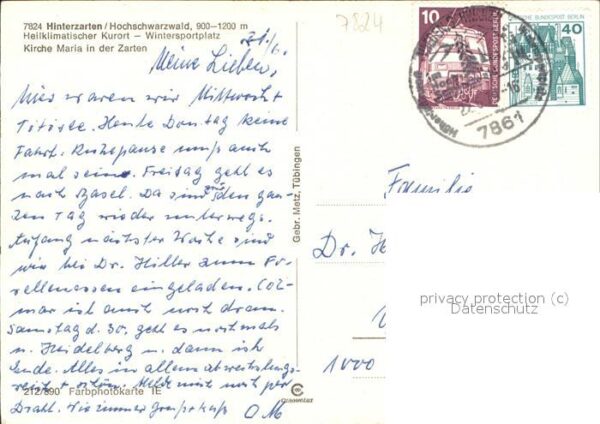 7824 Hinterzarten/Hochschwarzwald, 900-1200 m
Heilklimatischer Kurort - Wintersportplatz
Kirche Maria in der Zarten
7824
Meine Lieben,
Hier waren wir Mittwoch
Titisee. Heute Donstag keine
Fahrt. Ruhepause muß auch
mal sein. Freitag geht es
nach Basel. Da sind wir den gan-
zen Tag wieder unterwegs.
Anfang nächster Woche sind
wir bei Dr. Hiller zum Fo-
rellenessen eingeladen. Col-
mar ist auch noch dran.
Samstag d. 30. geht es nochmals
n. Heidelberg u. dann ist
Ende. Alles in allem abwechslungs-
reich + schön. Melde mich noch per
Draht. Wie immer
OM
212/890 Farbphotokarte IE
Gebr. Metz, Tübingen
10
DEUTSCHE BUNDESPOST BERLIN
40
DEUTSCHE BUNDESPOST BERLIN
7861
Familie
Dr. H
1000
privacy protection (c)
Datenschutz